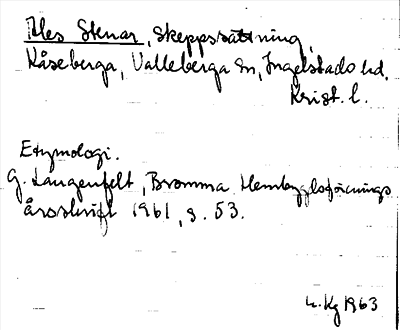 Ales Stenar, skeppssättning,
Kåseberga, Valleberga sn, Ingelstads hd.
Krist. l.
Etymologi.
G. Langenfelt, Bromma Hembygdsförenings
årsskrift 1961, s. 53.
Kg 1963